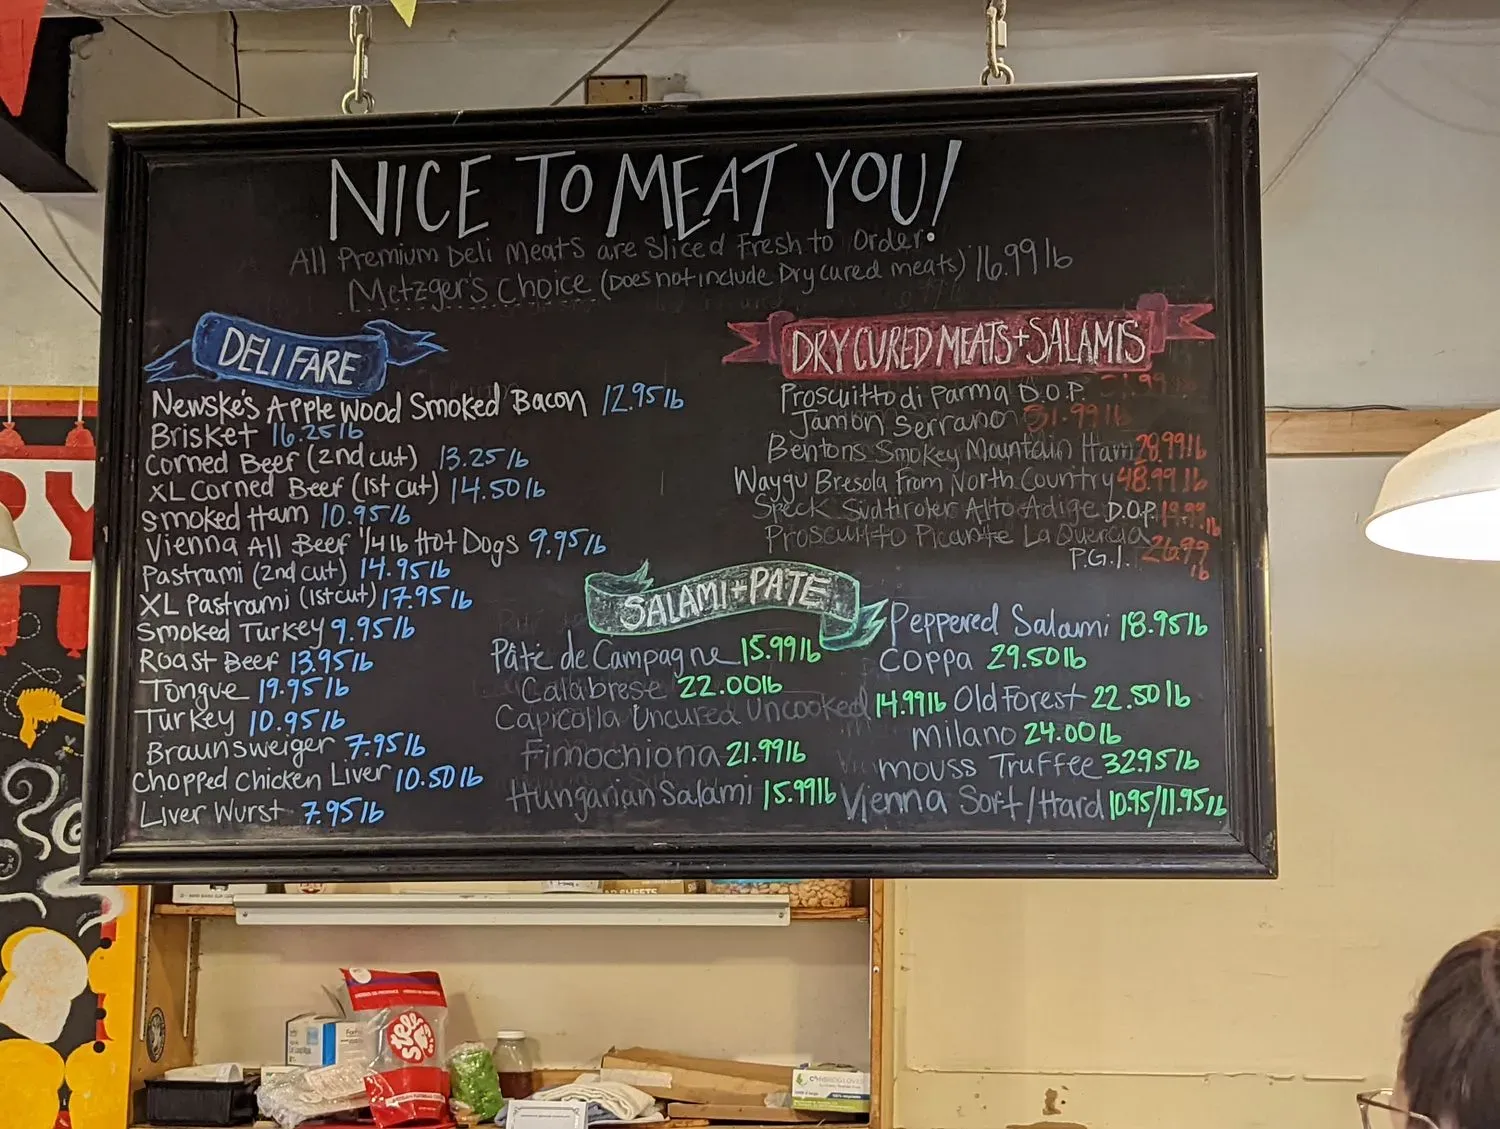 NICE TO MEAT YOU!
All Premium Deli Meats are Sliced Fresh to Order.
Metzger's Choice (Does not include Dry cured meats) 16.99 lb
DELI FARE
Newske's Apple Wood Smoked Bacon 12.95 lb
Brisket 16.25 lb
Corned Beef (2nd cut) 13.25 lb
XL Corned Beef (1st cut) 14.50 lb
Smoked Ham 10.95 lb
Vienna All Beef 1/4 lb Hot Dogs 9.95 lb
Pastrami (2nd cut) 14.95 lb
XL Pastrami (1st cut) 17.95 lb
Smoked Turkey 9.95 lb
Roast Beef 13.95 lb
Tongue 19.95 lb
Turkey 10.95 lb
Braunsweiger 7.95 lb
Chopped Chicken Liver 10.50 lb
Liver Wurst 7.95 lb
DRY CURED MEATS + SALAMIS
Proscuitto di Parma D.O.P. 31.99 lb
Jamon Serrano 31.99 lb
Bentons Smokey Mountain Ham 28.99 lb
Waygu Bresola From North Country 48.99 lb
Speck Sudtiroler Alto Adige D.O.P. 19.99 lb
Proscuitto Picante La Quercia
P.G.I. 26.99 lb
SALAMI + PATE
Pâté de Campagne 15.99 lb
Calabrese 22.00 lb
Capicolla Uncured Uncooked 14.99 lb
Finnochiona 21.99 lb
Hungarian Salami 15.99 lb
Peppered Salami 18.95 lb
Coppa 29.50 lb
Old Forest 22.50 lb
Milano 24.00 lb
Mouss Truffee 32.95 lb
Vienna Soft / Hard 10.95/11.95 lb
RY